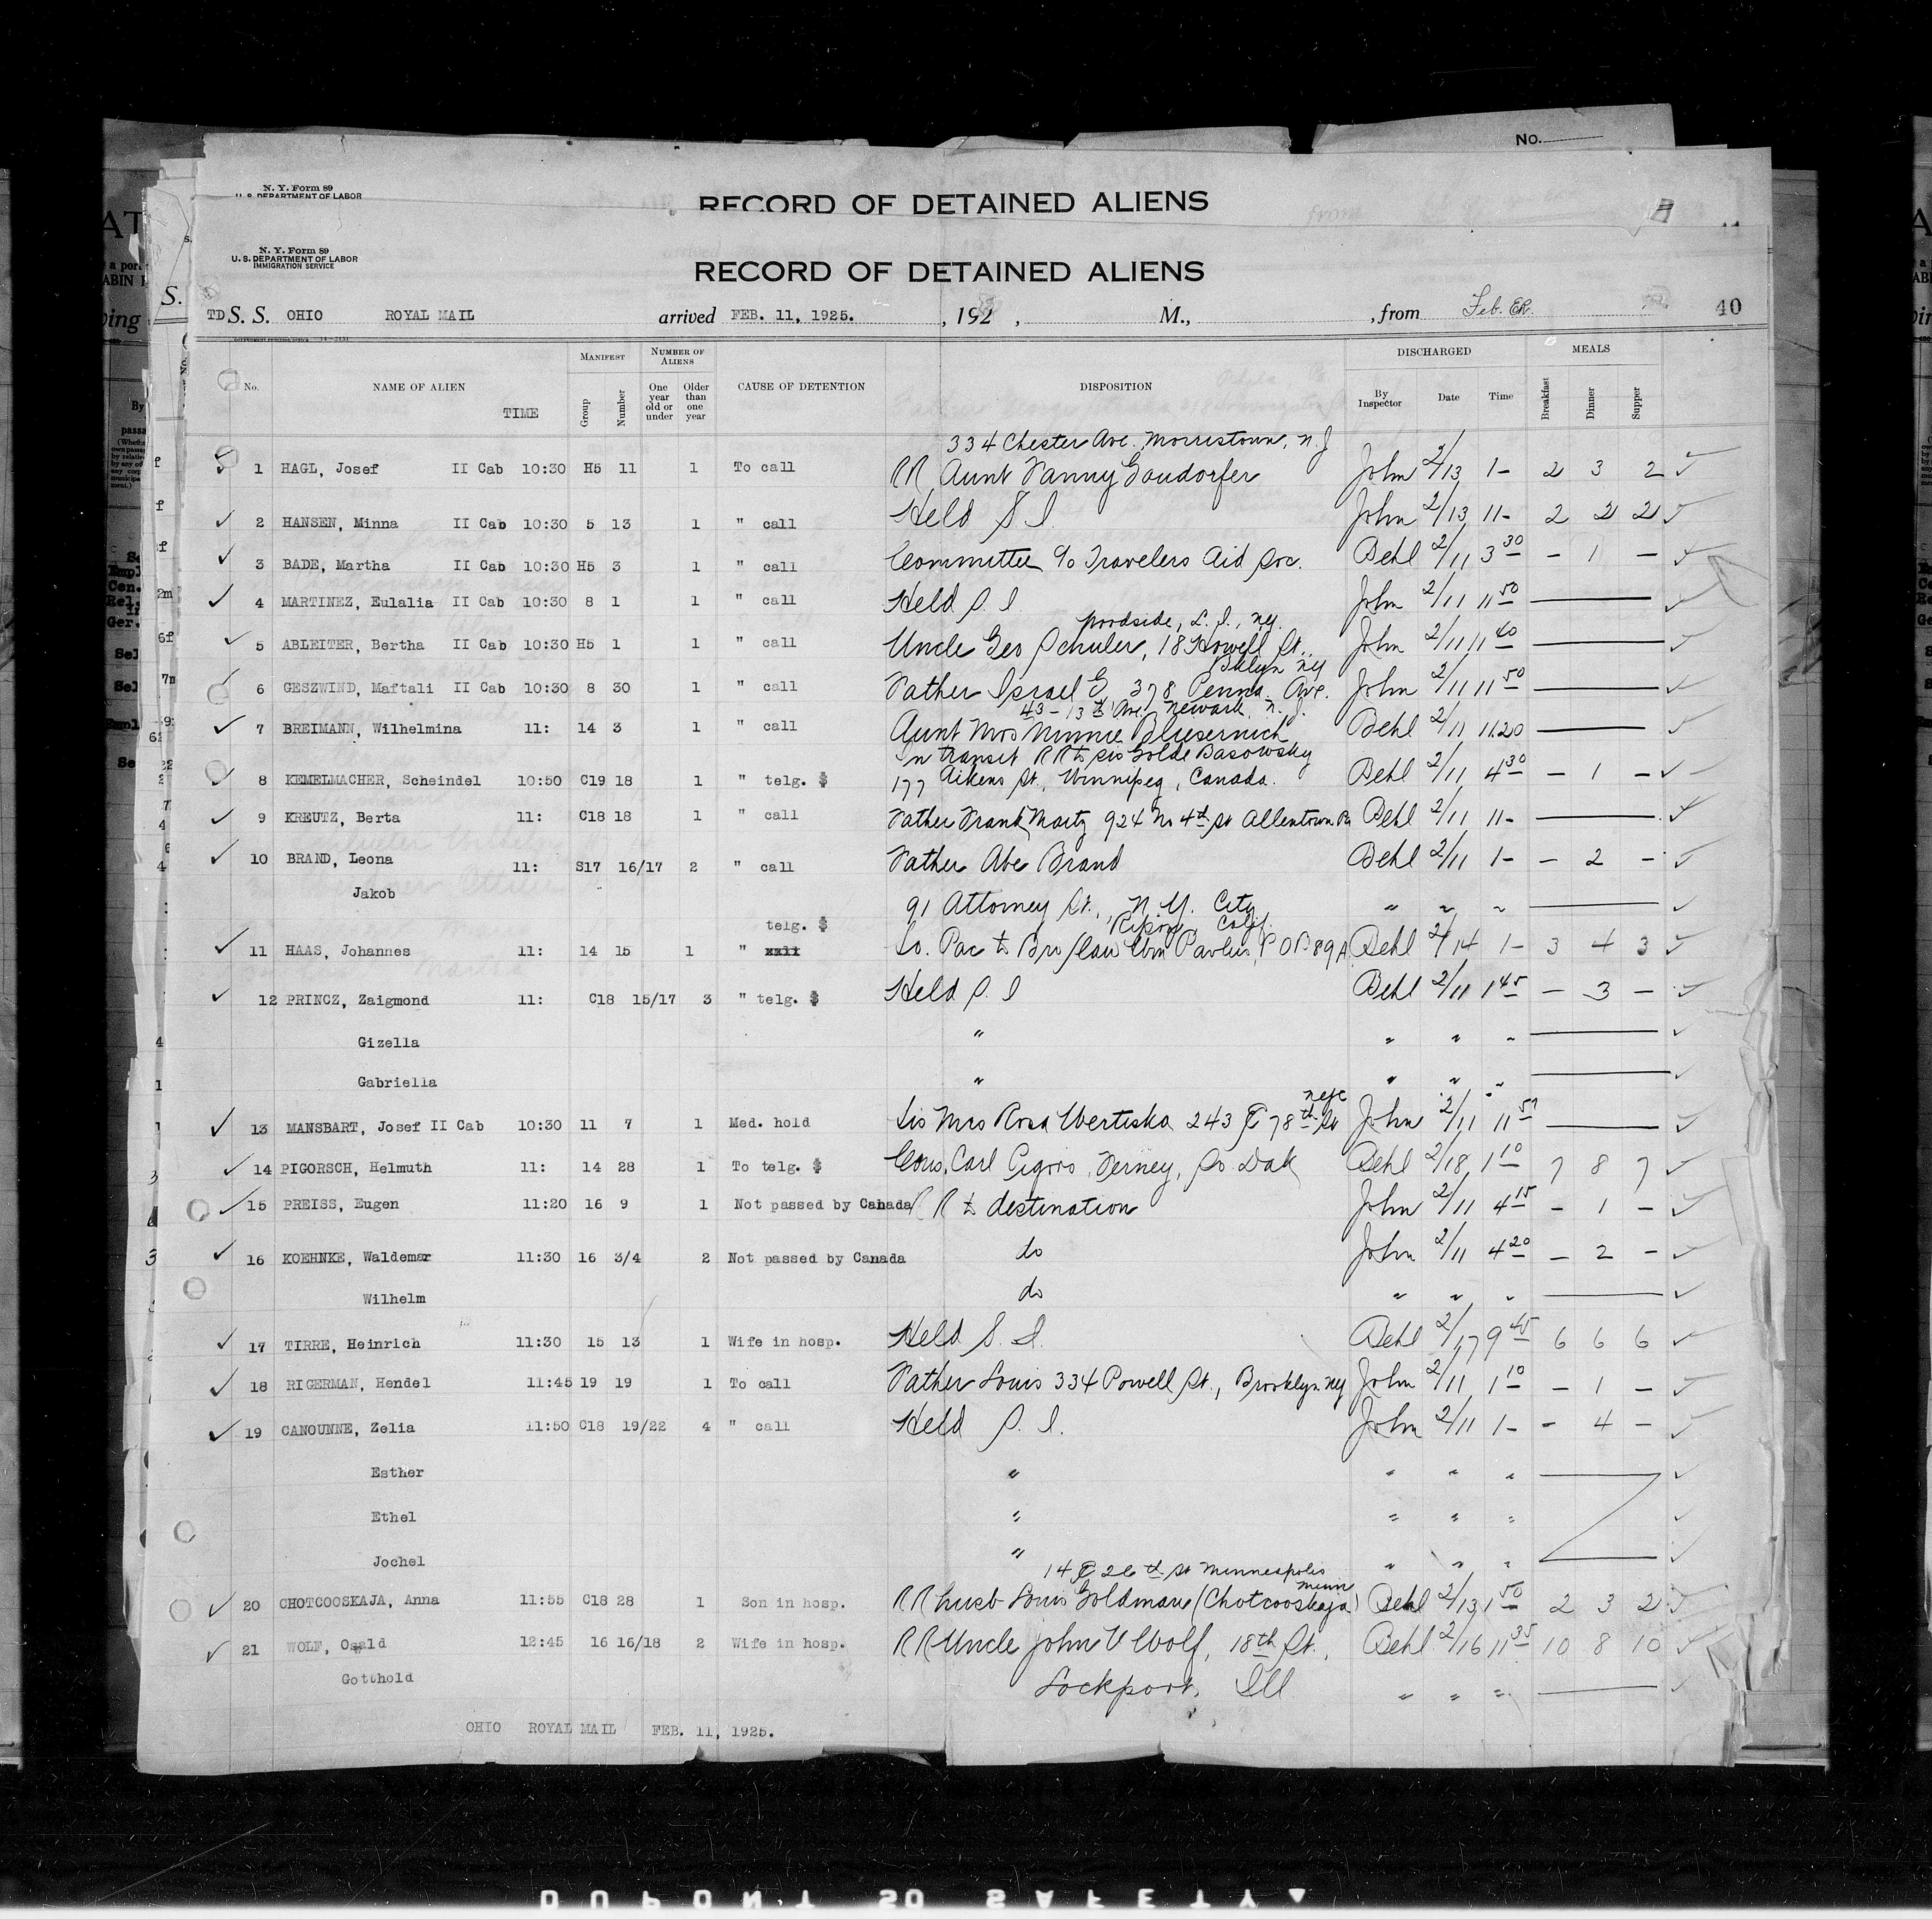 No.
N. Y. Form 89
U. S. DEPARTMENT OF LABOR
RECORD OF DETAINED ALIENS
N. Y. Form 89
U. S. DEPARTMENT OF LABOR
IMMIGRATION SERVICE
RECORD OF DETAINED ALIENS
TD S. S. OHIO ROYAL MAIL arrived FEB. 11, 1925. , 192 , M., , from Feb. 40
No. NAME OF ALIEN TIME MANIFEST Group Number NUMBER OF ALIENS One year old or under Older than one year CAUSE OF DETENTION DISPOSITION DISCHARGED By Inspector Date Time MEALS Breakfast Dinner Supper
334 Chester Ave. Morristown, N. J
1 HAGL, Josef II Cab 10:30 H5 11 1 To call RR Aunt Fanny Gaudorfer John 2/13 1- 2 3 2
2 HANSEN, Minna II Cab 10:30 5 13 1 " call Held S I John 2/13 11- 2 2 2
3 BADE, Martha II Cab 10:30 H5 3 1 " call Committee c/o Travelers Aid Soc. Behl 2/11 3 30 - 1 -
4 MARTINEZ, Eulalia II Cab 10:30 8 1 1 " call Held S. I John 2/11 11 50
Woodside, L. I., NY.
5 ABLEITER, Bertha II Cab 10:30 H5 1 1 " call Uncle Geo Schuler, 18 Howell St. John 2/11 11 40
Bklyn NY
6 GESZWIND, Maftali II Cab 10:30 8 30 1 " call Father Israel G, 378 Penna. Ave. John 2/11 11 50
43 - 13th Ave. Newark, N. J.
7 BREIMANN, Wilhelmina 11: 14 3 1 " call Aunt Mrs Minnie Bliesernich Behl 2/11 11.20
In transit RR to sis Golde Basowsky
8 KEMELMACHER, Scheindel 10:50 C19 18 1 " telg. $ 177 Aikens St., Winnipeg, Canada. Behl 2/11 4 30 - 1 -
9 KREUTZ, Berta 11: C18 18 1 " call Father Frank Marty 924 No 4th St Allentown Pa Behl 2/11 11-
10 BRAND, Leona 11: S17 16/17 2 " call Father Abe Brand Behl 2/11 1- - 2 -
Jakob 91 Attorney St., N. Y. City " " "
telg. $ Ripon, Calif.
11 HAAS, Johannes 11: 14 15 1 " xxll So. Pac to Bro/law Wm Pavlus, P O B 89 A Behl 2/14 1- 3 4 3
12 PRINCZ, Zaigmond 11: C18 15/17 3 " telg. $ Held S. I Behl 2/11 1 45 - 3 -
Gizella " " " "
Gabriella " " " "
NYC
13 MANSBART, Josef II Cab 10:30 11 7 1 Med. hold Sis Mrs Rosa Wertiska 243 E 78th St John 2/11 11 57
14 PIGORSCH, Helmuth 11: 14 28 1 To telg. $ Cous, Carl Verney, So Dak Behl 2/18 1 10 7 8 7
15 PREISS, Eugen 11:20 16 9 1 Not passed by Canada RR to destination John 2/11 4 15 - 1 -
16 KOEHNKE, Waldemar 11:30 16 3/4 2 Not passed by Canada do John 2/11 4 20 - 2 -
Wilhelm do " " "
17 TIRRE, Heinrich 11:30 15 13 1 Wife in hosp. Held S. I. Behl 2/17 9 45 6 6 6
18 RIGERMAN, Hendel 11:45 19 19 1 To call Father Louis 334 Powell St., Brooklyn NY John 2/11 1 10 - 1 -
19 CANOUNNE, Zelia 11:50 C18 19/22 4 " call Held S. I. John 2/11 1- - 4 -
Esther " " " "
Ethel " " " "
Jochel " " " "
14 E 26th St Minneapolis
Minn
20 CHOTCOOSKAJA, Anna 11:55 C18 28 1 Son in hosp. RR husb Louis Goldman (Chotcooskaja) Behl 2/13 1 50 2 3 2
21 WOLF, Osald 12:45 16 16/18 2 Wife in hosp. RR Uncle John V Wolf, 18th St., Behl 2/16 11 35 10 8 10
Gotthold Lockport, Ill. " " "
OHIO ROYAL MAIL FEB. 11, 1925.
DUPONT SAFETY